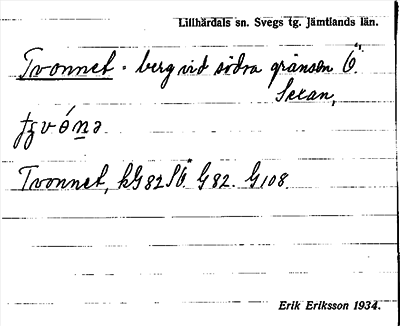 Lillhärdals sn. Svegs tg. Jämtlands län.
Tvonnet - berg vid södra gränsen Ö.
Sexan,
Tvonnet, kG82SÖ. G82. G108.
Erik Eriksson 1934.